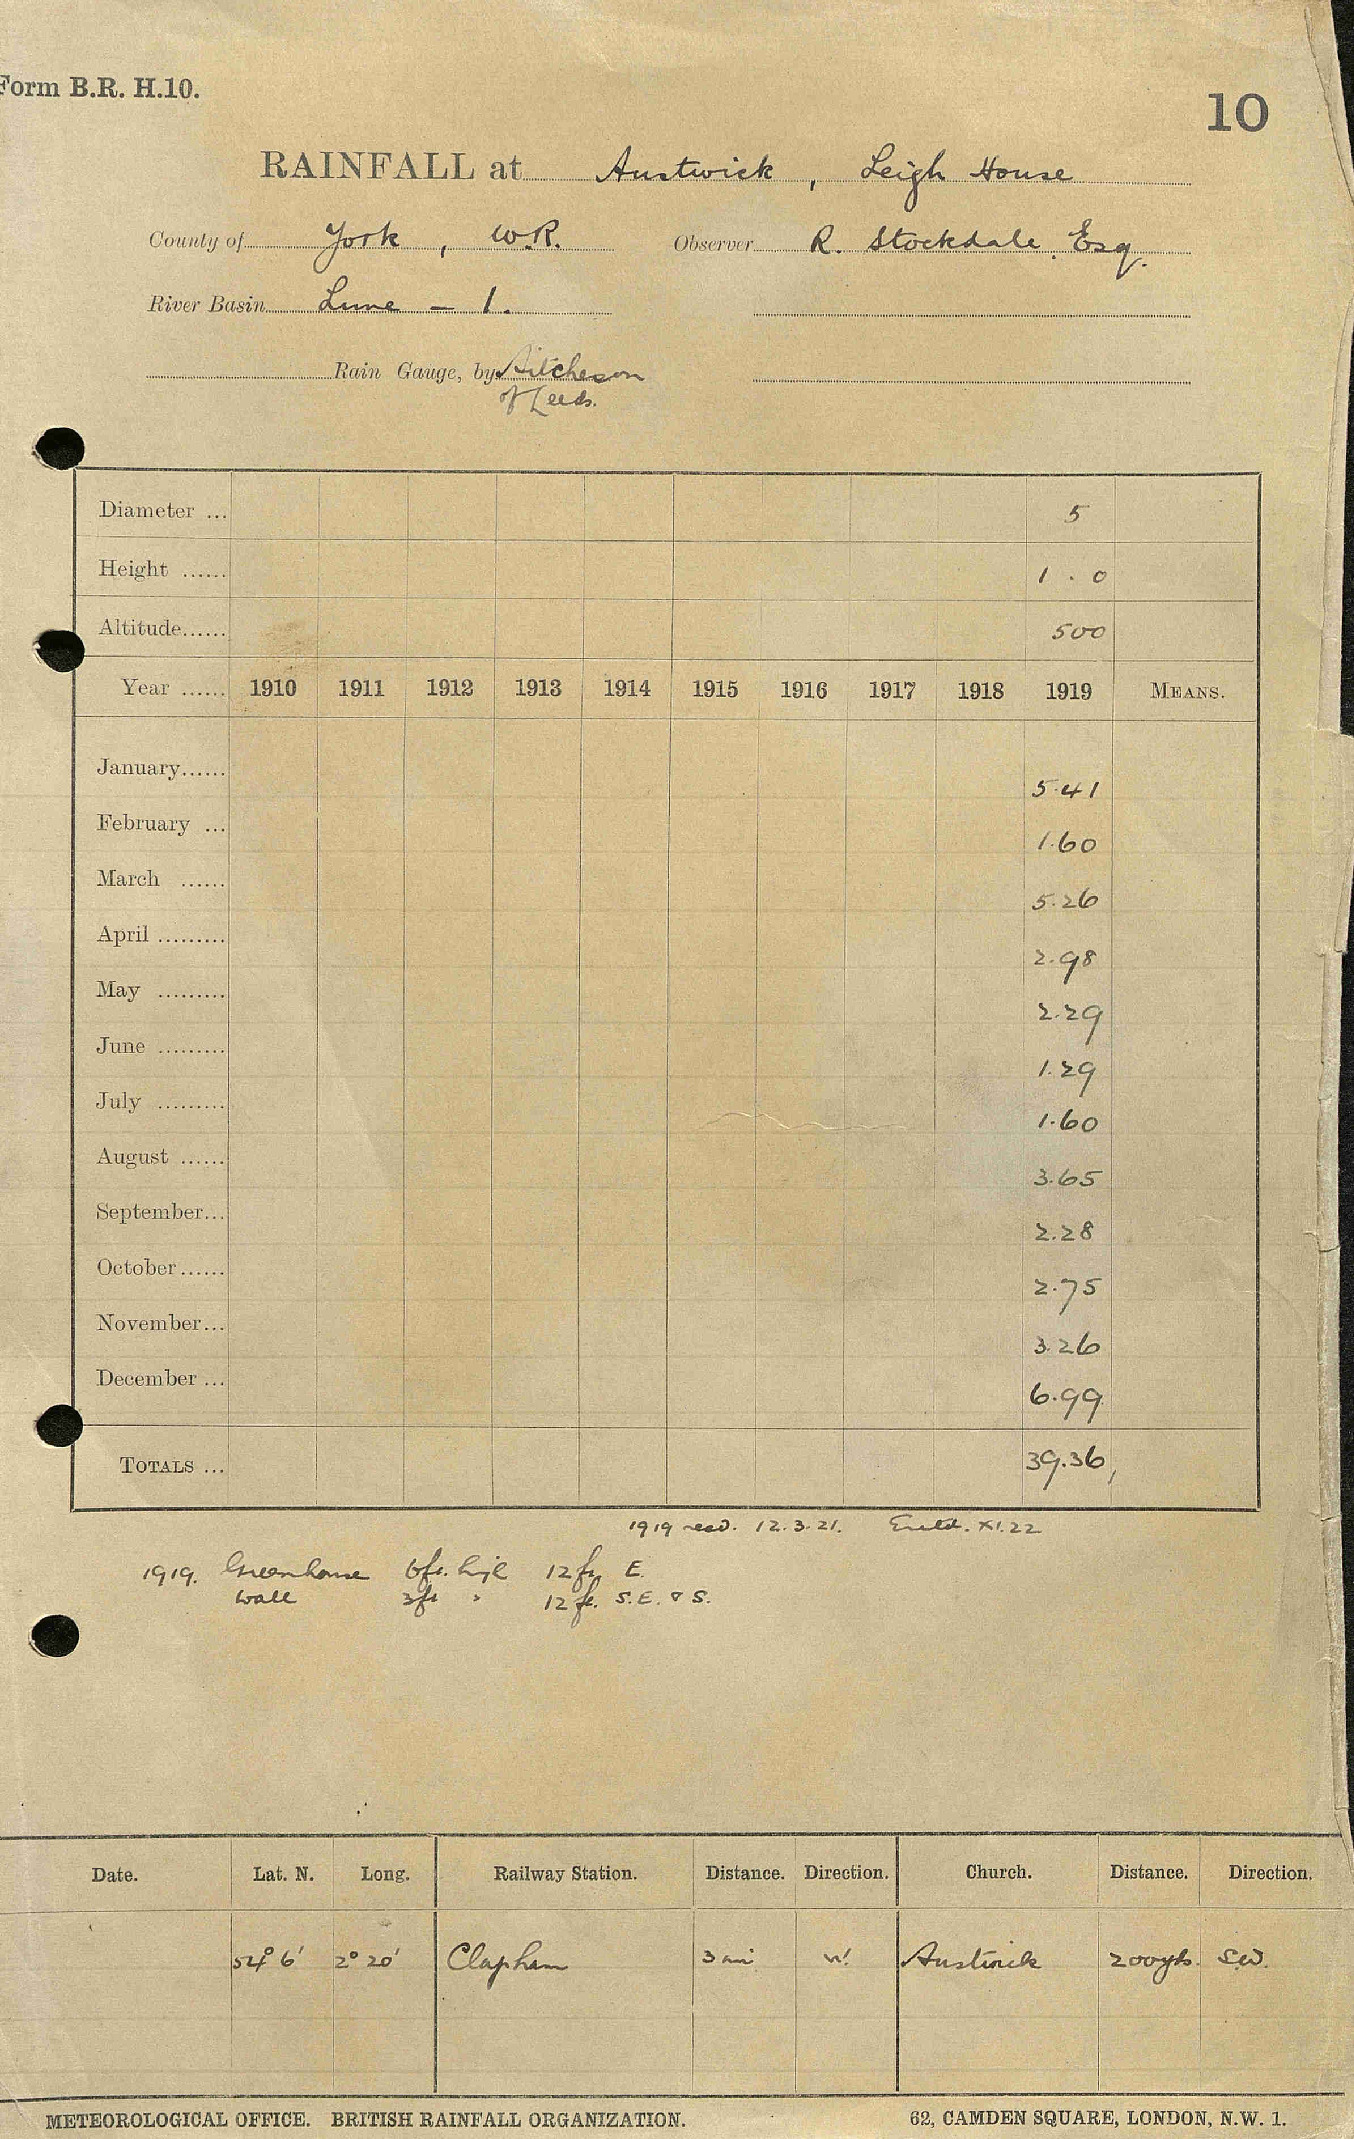 Form B.R. H.10.
10
RAINFALL at Austwick, Leigh House
County of York, W.R. Observer R. Stockdale, Esq.
River Basin Lune - 1.
Rain Gauge, by Aitcheson
of Leeds.
Diameter ... 5
Height ...... 1 . 0
Altitude...... 500
Year ...... 1910 1911 1912 1913 1914 1915 1916 1917 1918 1919 MEANS.
January...... 5.41
February ... 1.60
March ...... 5.26
April ......... 2.98
May ......... 2.29
June ......... 1.29
July ......... 1.60
August ...... 3.65
September... 2.28
October...... 2.75
November... 3.26
December ... 6.99
TOTALS ... 39.36
1919 recd. 12.3.21. Entd. XI.22
1919. Greenhouse 6ft. high 12ft. E.
Wall 3ft " 12ft. S.E. & S.
Date. Lat. N. Long. Railway Station. Distance. Direction. Church. Distance. Direction.
54° 6' 2° 20' Clapham 3 mi. W. Austwick 200yds. SW.
METEOROLOGICAL OFFICE. BRITISH RAINFALL ORGANIZATION. 62, CAMDEN SQUARE, LONDON, N.W. 1.